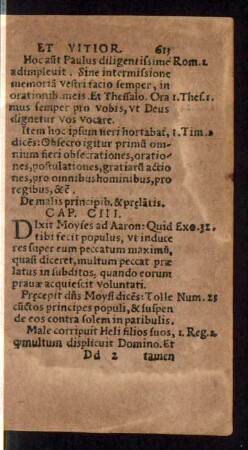 ET VITIOR. 613
Hoc aūt Paulus diligentissime Rom. 1
adimpleuit, Sine intermissione
memoriā vestri facio semper, in
orationib. meis. Et Thessalo. Ora 1. Thes. 1
mus semper pro vobis, vt Deus
dignetur vos vocare.
Item hoc ipsum fieri hortabať, 1. Tim. 2
dicēs: Obsecro igitur primū om
nium fieri obsecrationes, oratio-
nes, postulationes, gratiarū actio
nes, pro omnibus hominibus, pro
regibus, &c̄.
De malis principib. & pręlatis.
CAP. CIII.
DIxit Moyses ad Aaron: Quid Exo. 32.
tibi fecit populus, vt induce
res super eum peccatum maximū,
quasi diceret, multum peccat præ
latus in subditos, quando eorum
prauæ acquiescit voluntati.
Pręcepit dn̄s Moysi dicēs: Tolle Num. 25
cūctos principes populi, & suspen
de eos contra solem in patibulis.
Male corripuit Heli filios suos, 1. Reg. 2
qđ multum displicuit Domino. Et
Dd 2 tamen